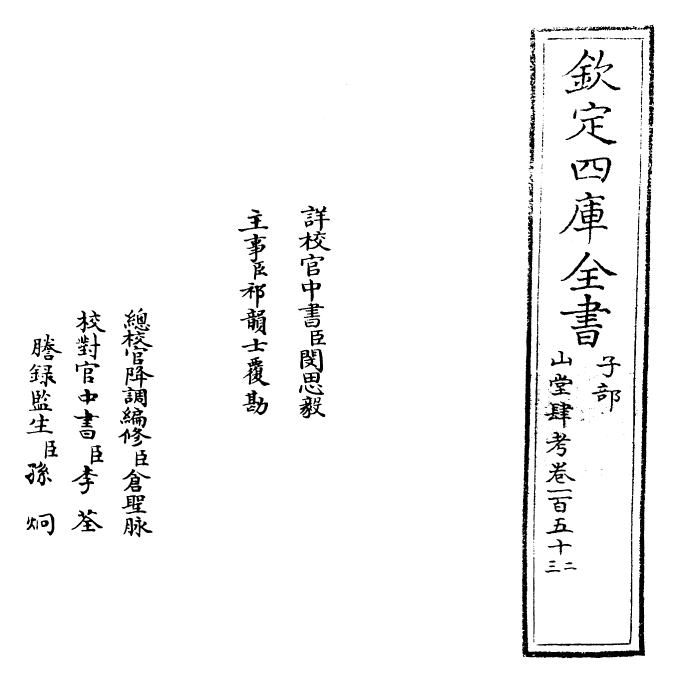 欽定四庫全書
子部
山堂肆考卷一百五十二
三
詳校官中書臣閔思毅
主事臣祁韻士覆勘
總校官降調編修臣倉聖脉
校對官中書臣李荃
謄錄監生臣孫炯